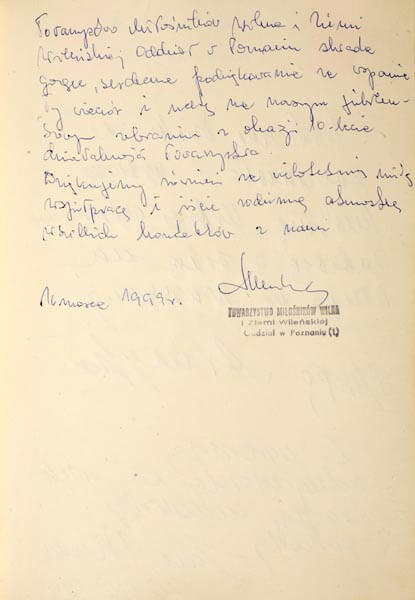 Towarzystwo Miłośników Wilna i Ziemi
Wileńskiej Oddział w Poznaniu składa
gorące, serdeczne podziękowanie za wspania-
ły wieczór i na naszym jubileu-
szowym zebraniu z okazji 10-lecia
działalności Towarzystwa.
Dziękujemy również za wieloletnią miłą
współpracę i iście rodzinną atmosferę
wszelkich kontaktów z nami
marzec 1999 r.
TOWARZYSTWO MIŁOŚNIKÓW WILNA
i Ziemi Wileńskiej
Oddział w Poznaniu (1)